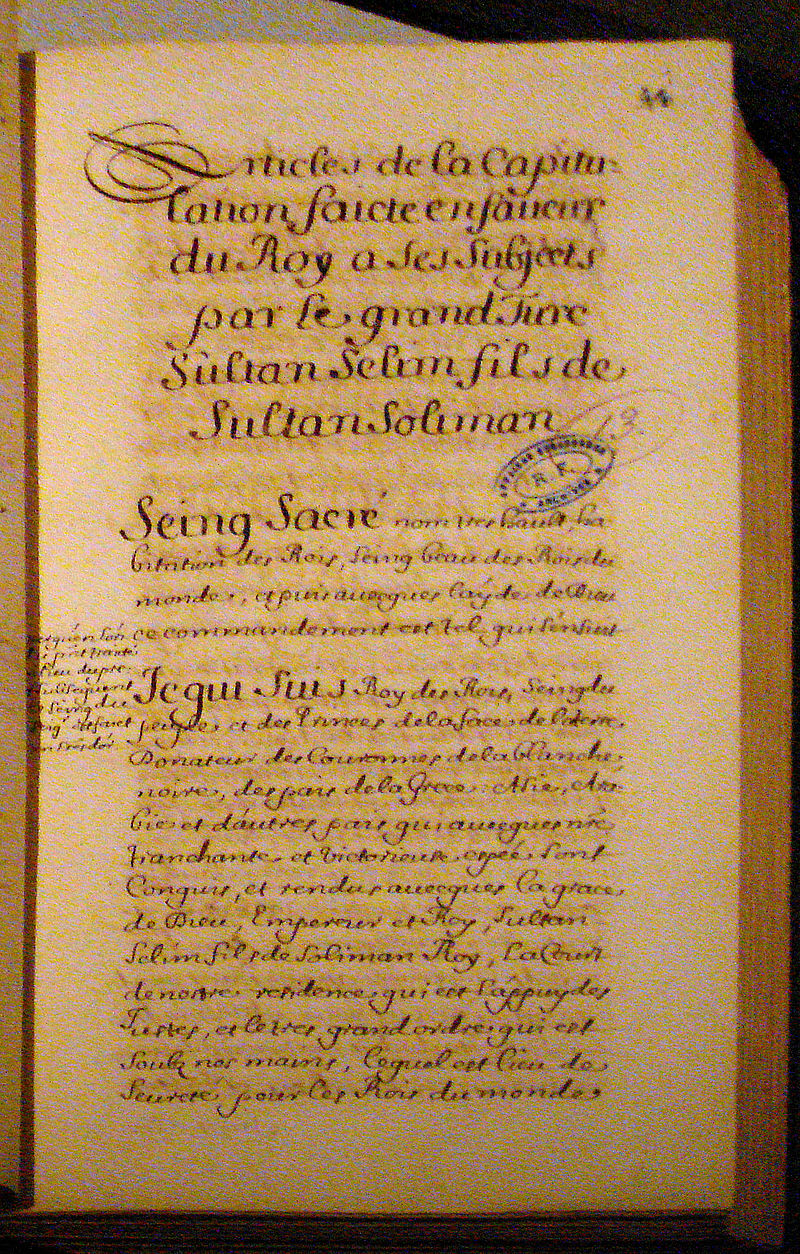 44
Articles de la Capitu-
lation faicte en faueur
du Roy a ses Subjects
par le grand Turc
Sultan Selim fils de
Sultan Soliman
13.
R. F.
Seing Sacré nom tres hault, ha
bitation des Rois, Seing beau des Rois du
monde, et puis auecques layde de Dieu
ce commandement est tel, qui s'ensuit
Je qui Suis Roy des Rois, Seing du
peuple et des Princes de la face de la terre,
Donateur des Couronnes de la blanche,
noire, des pais de la Grece Asie, Ara
bie et d'autres pais qui auecques nre
tranchante et Victorieuse espée sont
Conquis, et rendus auecques la grace
de Dieu, Empereur et Roy, Sultan
Selim fils de Soliman Roy, La Court
de nostre residence qui est l'appuy des
Justes, et le tres grand ordre qui est
soubz nos mains, lequel est lieu de
Seureté pour les Rois du monde,